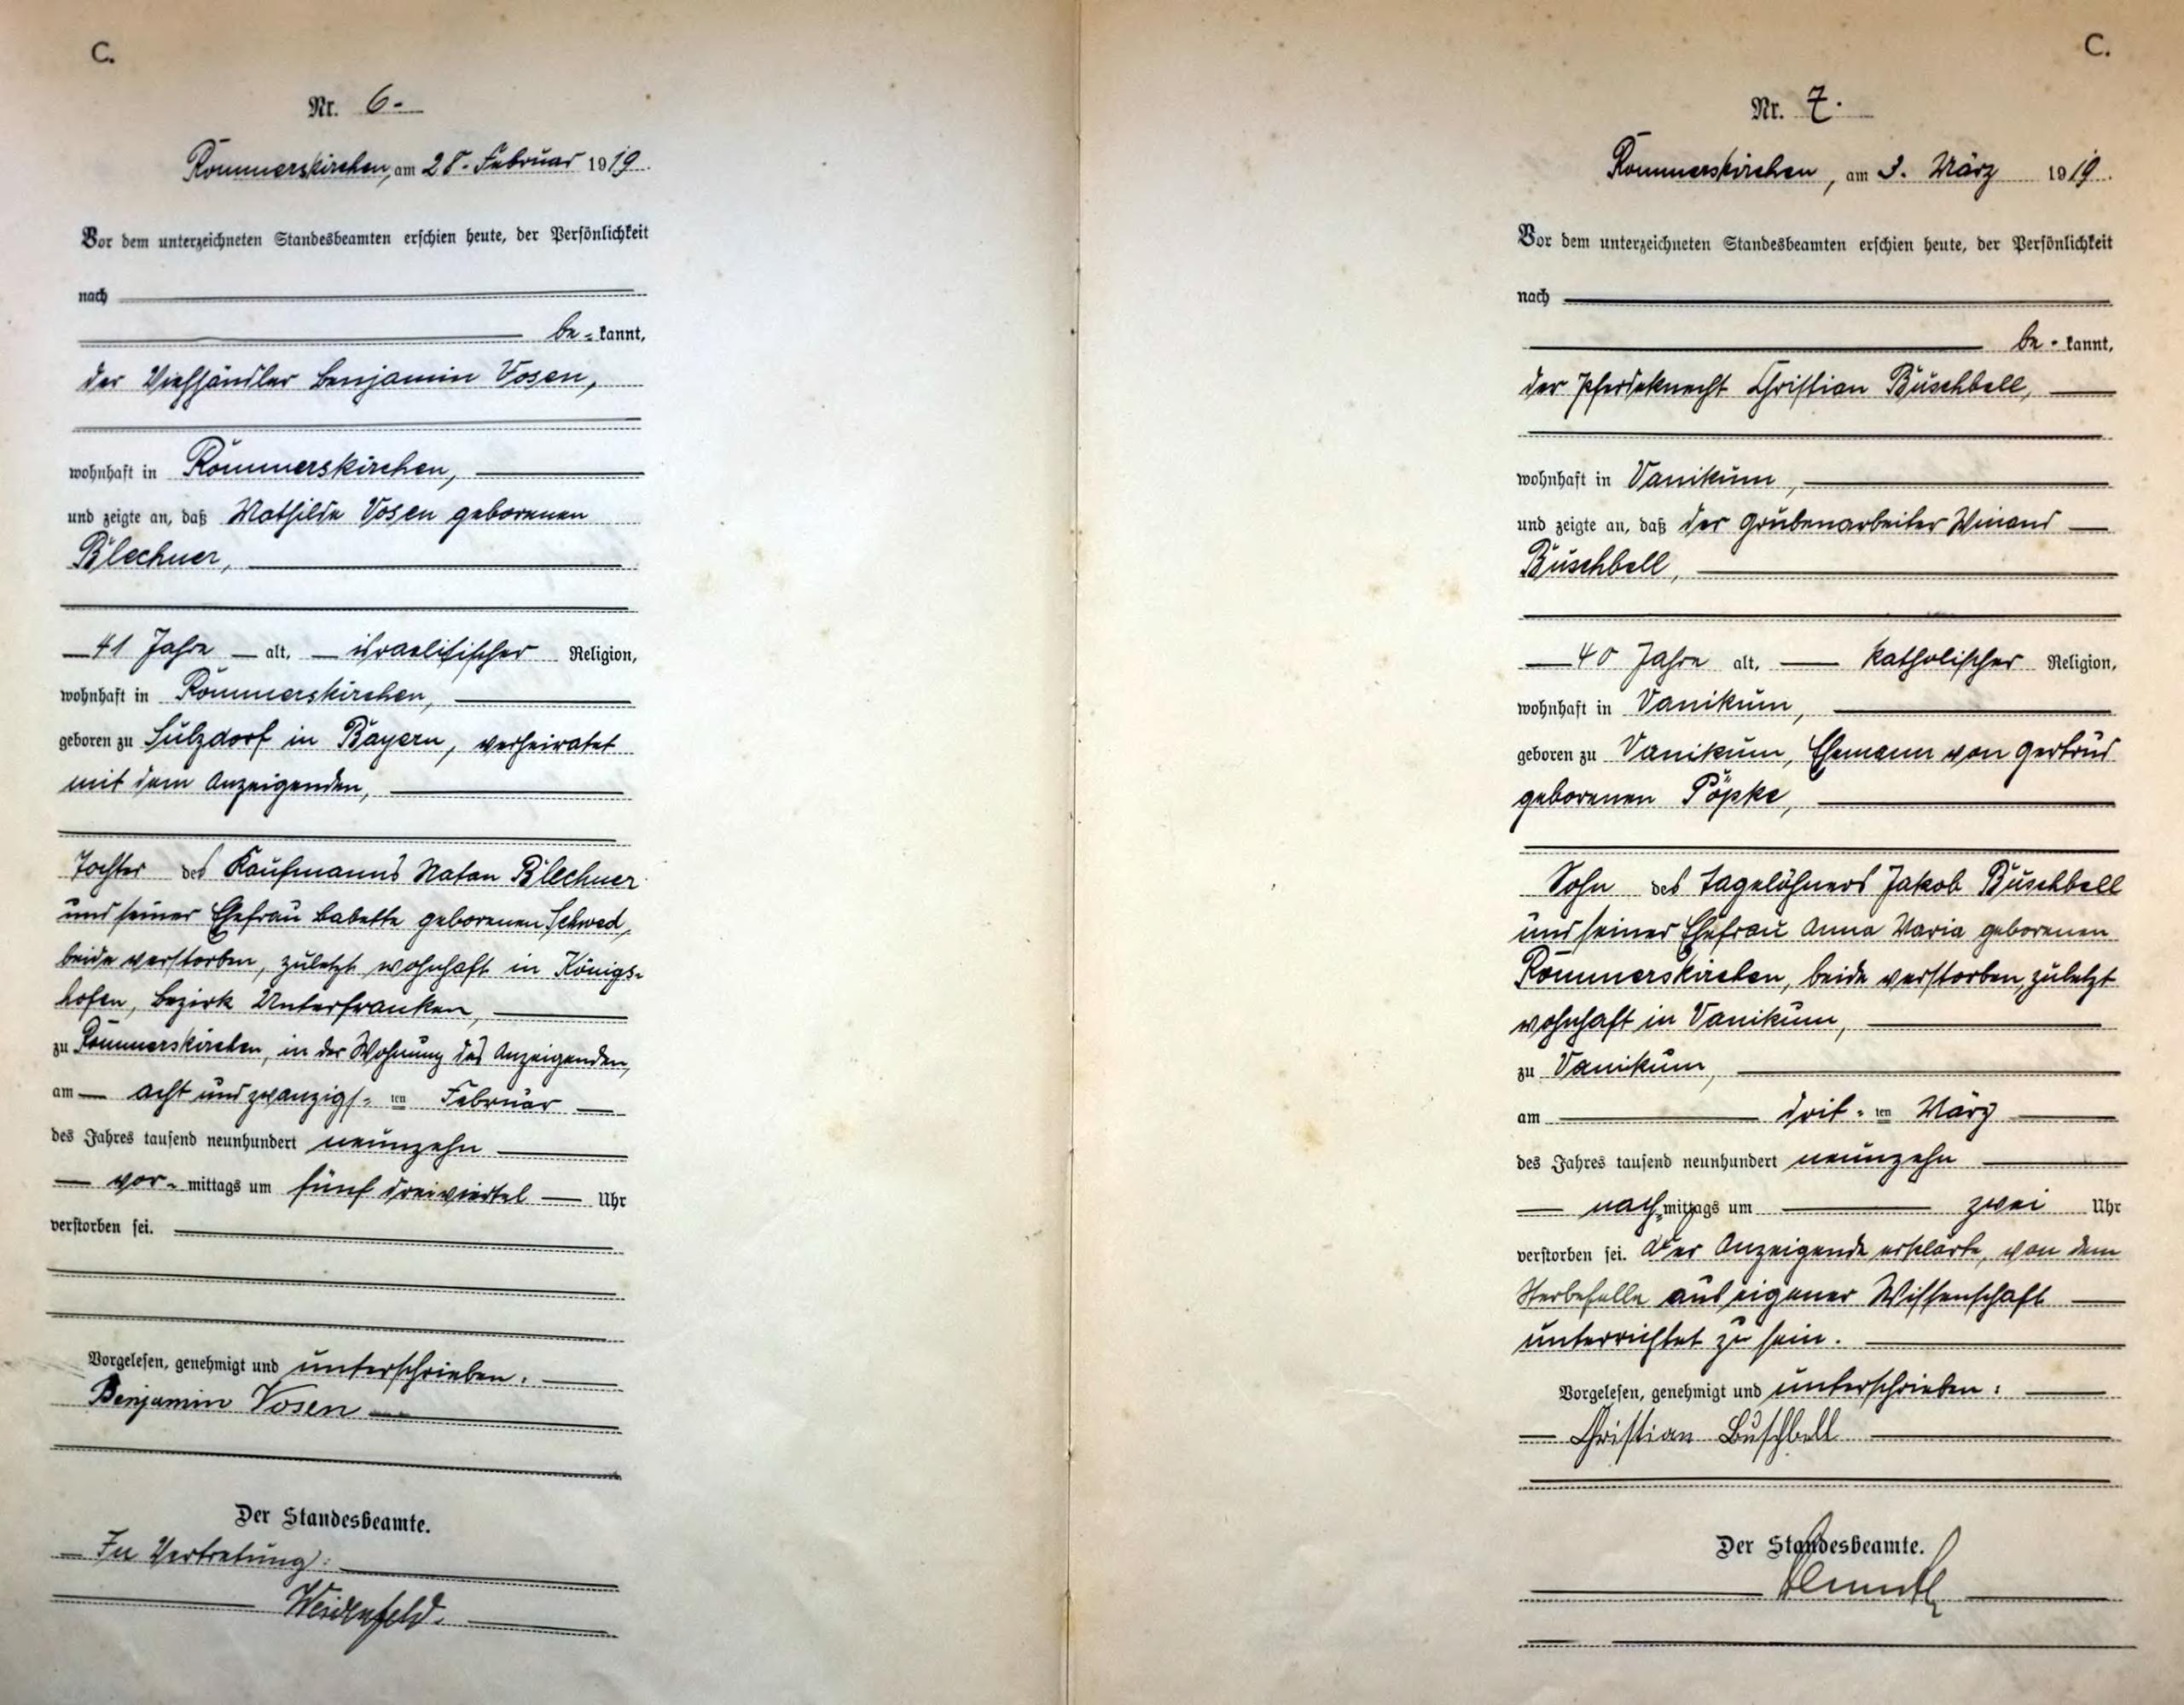 C.
Nr. 6.
Rommerskirchen, am 28. Februar 1919.
Vor dem unterzeichneten Standesbeamten erschien heute, der Persönlichkeit
nach
be-kannt,
der Viehhändler Benjamin Vosen,
wohnhaft in Rommerskirchen,
und zeigte an, daß Mathilde Vosen geborenen
Blechner,
41 Jahre alt, israelitischer Religion,
wohnhaft in Rommerskirchen,
geboren zu Sulzdorf in Bayern, verheiratet
mit dem Anzeigenden,
Tochter des Kaufmanns Natan Blechner
und seiner Ehefrau Babette geborenen Schwed,
beide verstorben, zuletzt wohnhaft in Königs-
hofen, Bezirk Unterfranken,
zu Rommerskirchen, in der Wohnung des Anzeigenden,
am acht und zwanzigs-ten Februar
des Jahres tausend neunhundert neunzehn
vor-mittags um fünf dreiviertel Uhr
verstorben sei.
Vorgelesen, genehmigt und unterschrieben.
Benjamin Vosen
Der Standesbeamte.
In Vertretung:
Weidenfeld.
C.
Nr. 7.
Rommerskirchen, am 3. März 1919.
Vor dem unterzeichneten Standesbeamten erschien heute, der Persönlichkeit
nach
be-kannt,
der Pferdeknecht Christian Buschbell,
wohnhaft in Vanikum,
und zeigte an, daß der Grubenarbeiter Winand
Buschbell,
40 Jahre alt, katholischer Religion,
wohnhaft in Vanikum,
geboren zu Vanikum, Ehemann von Gertrud
geborenen Pöpke,
Sohn des Tagelöhners Jakob Buschbell
und seiner Ehefrau Anna Maria geborenen
Rommerskirchen, beide verstorben, zuletzt
wohnhaft in Vanikum,
zu Vanikum,
am drit-ten März
des Jahres tausend neunhundert neunzehn
nach-mittags um zwei Uhr
verstorben sei. Der Anzeigende erklärte, von dem
Sterbefalle aus eigener Wissenschaft
unterrichtet zu sein.
Vorgelesen, genehmigt und unterschrieben:
Christian Buschbell
Der Standesbeamte.